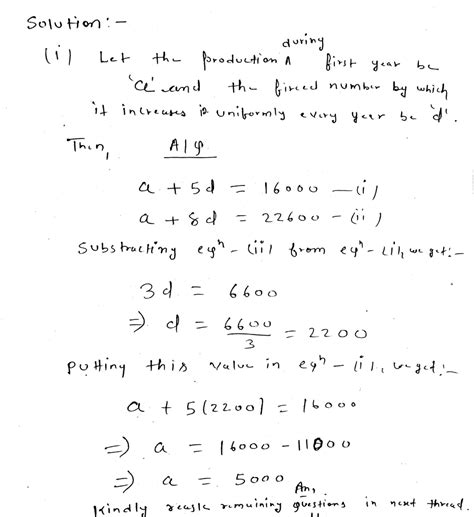 Solution:-
(i) Let the production during first year be
'a' and the fixed number by which
it increases is uniformly every year be 'd'.
Then, A/q
a + 5d = 16000 —(i)
a + 8d = 22600 — (ii)
Substracting eqⁿ - (ii) from eqⁿ - (i), we get:-
3d = 6600
⇒ d = 6600/3 = 2200
Putting this value in eqⁿ - (i), we get:-
a + 5(2200) = 16000
⇒ a = 16000 - 11000
⇒ a = 5000 Ans,
Kindly remaining questions in next thread.